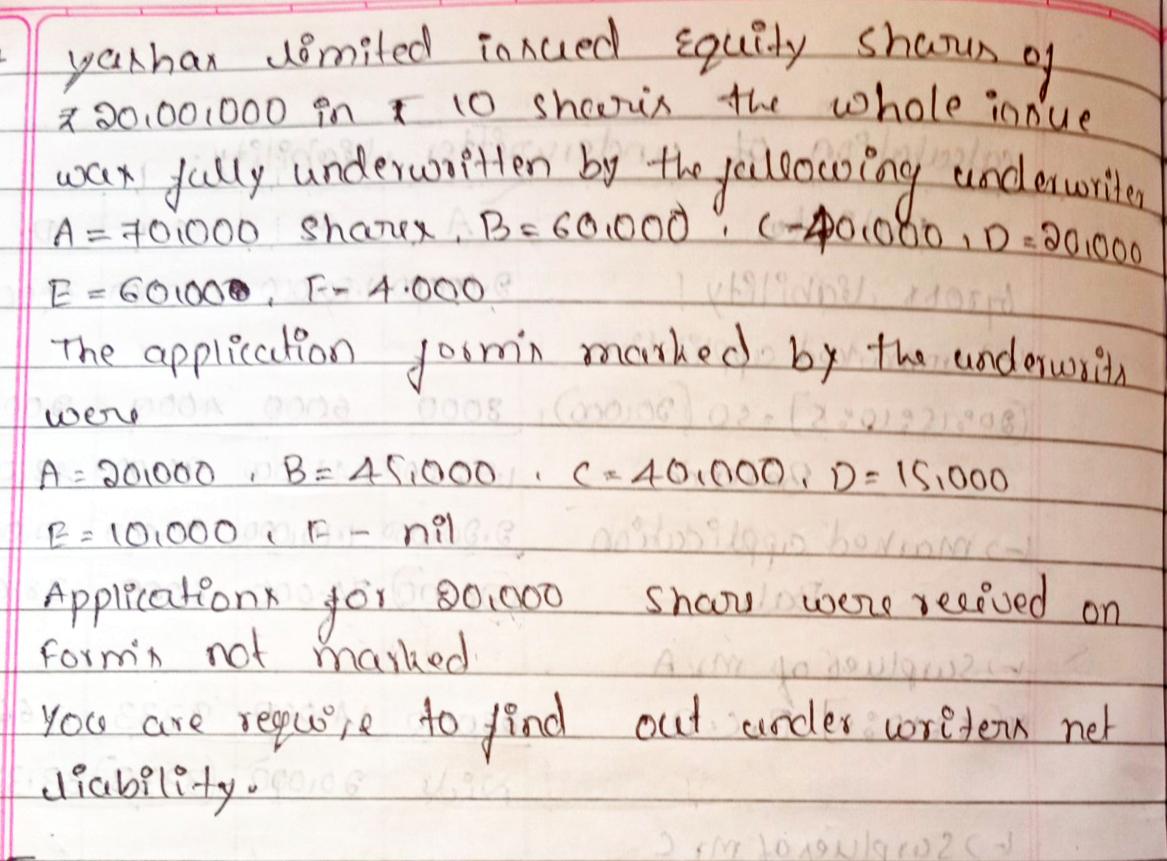 yashas limited issued Equity shares of
₹ 20,00,000 in ₹ 10 shares the whole issue
was fully underwritten by the following underwriter
A = 70,000 shares, B = 60,000, C - 40,000, D = 20,000
E = 60,000, F - 4.000
The application forms marked by the underwrits
were
A = 20,000, B = 45,000, C = 40,000, D = 15,000
E = 10,000, F - nil
Applications for 20,000 shars were recived on
forms not marked.
You are require to find out under writers net
liability.